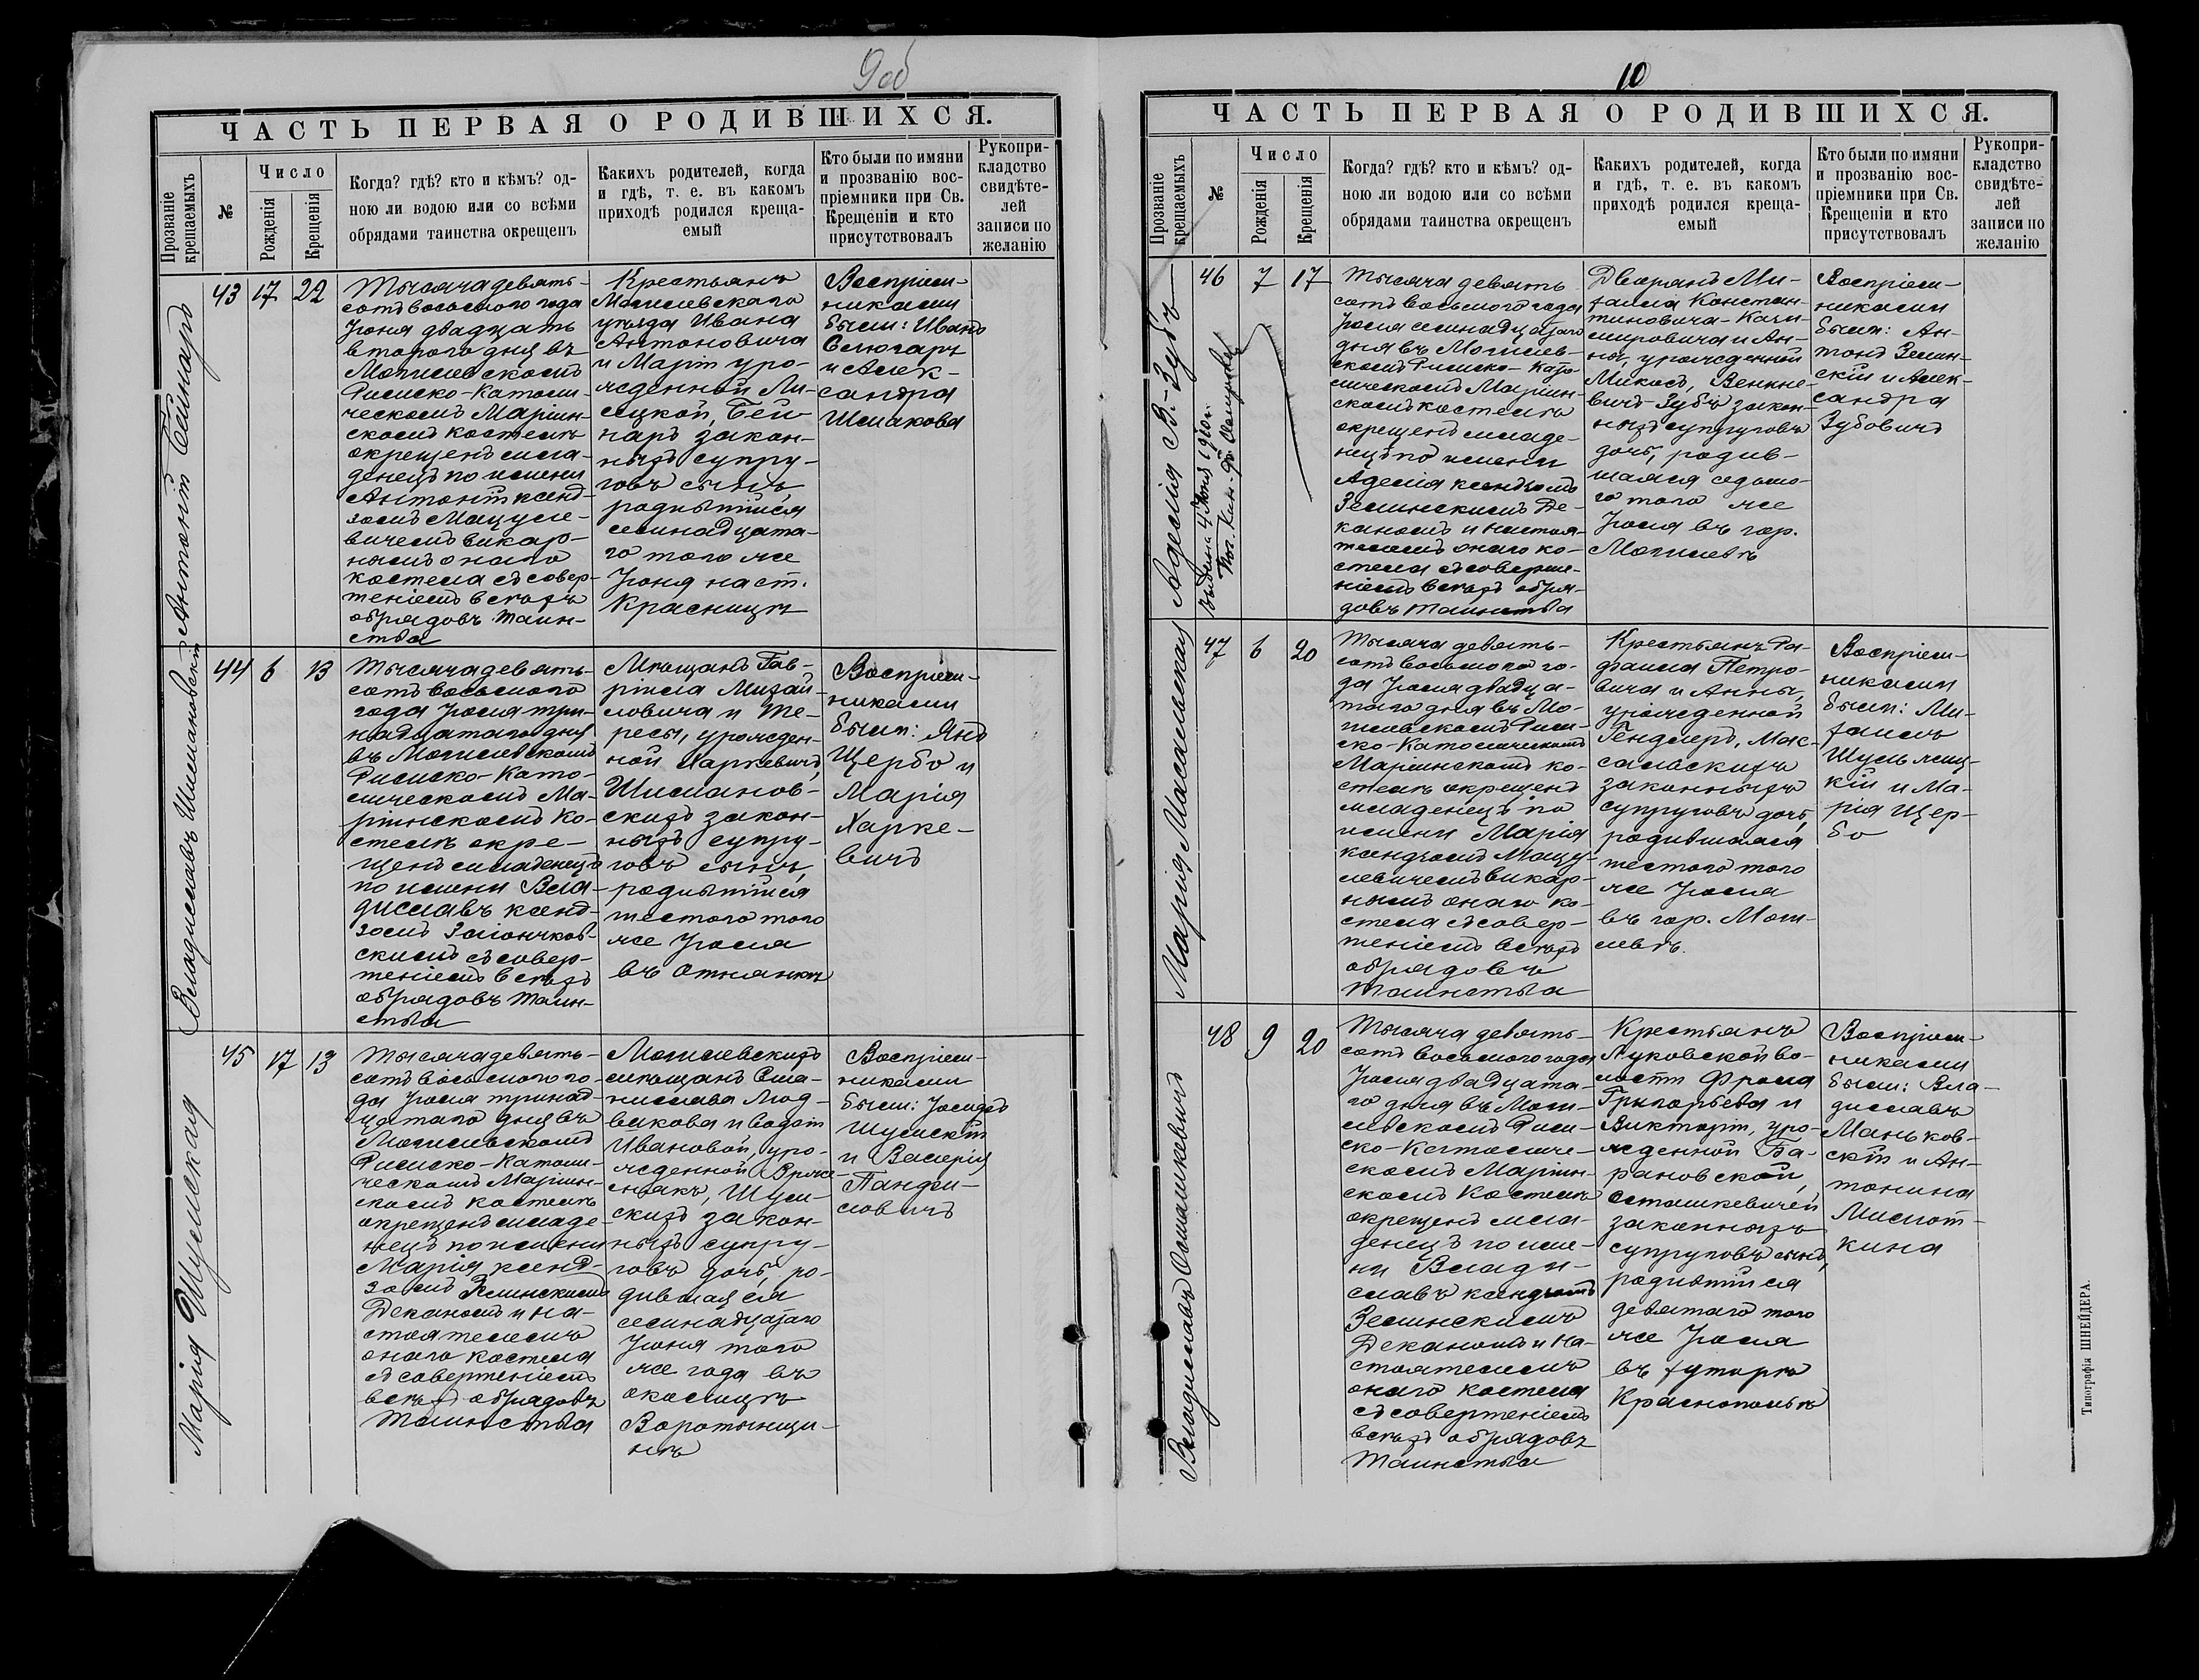 9об
ЧАСТЬ ПЕРВАЯ О РОДИВШИХСЯ.
Прозваніе крещаемыхъ
№
Число
Рожденія
Крещенія
Когда? гдѣ? кто и кѣмъ? од-
ною ли водою или со всѣми
обрядами таинства окрещенъ
Какихъ родителей, когда
и гдѣ, т. е. въ какомъ
приходѣ родился креща-
емый
Кто были по имяни
и прозванію вос-
пріемники при Св.
Крещеніи и кто
присутствовалъ
Рукопри-
кладство
свидѣте-
лей
записи по
желанію
Антоній Бейнаръ
43 17 22
Тысяча девять-
сотъ восьмого года
Іюня двадцать
второго дня въ
Могилевскомъ
Римско-Католи-
ческомъ Маріин-
скомъ костелѣ
окрещенъ мла-
денецъ по имени
Антоній ксенд-
зомъ Мацуле-
вичемъ викар-
нымъ онаго
костела съ совер-
шеніемъ всѣхъ
обрядовъ Таин-
ства
Крестьянъ
Могилевскаго
уѣзда Ивана
Антоновича
и Маріи уро-
жденной Ли-
сецкой, Бей-
наръ закон-
ныхъ супру-
говъ сынъ,
родившійся
семнадцата-
го того же
Іюня на ст.
Красницѣ
Воспріем-
никами
были: Иванъ
Слюсарь
и Алек-
сандра
Шмакова
Владиславъ Шимановскій
44 6 13
Тысяча девять-
сотъ восьмого
года Іюля три-
надцатаго дня
въ Могилевскомъ
Римско-Като-
лическомъ Ма-
ріинскомъ Ко-
стелѣ окре-
щенъ младенецъ
по имени Вла-
диславъ ксенд-
зомъ Заіончков-
скимъ съ совер-
шеніемъ всѣхъ
обрядовъ Таин-
ства
Мѣщанъ Гав-
ріила Михай-
ловича и Те-
ресы, урожден-
ной Харкевичъ,
Шиманов-
скихъ закон-
ныхъ супру-
говъ сынъ,
родившійся
шестого того
же Іюля
въ
Воспріем-
никами
были: Янъ
Щербо и
Марія
Харке-
вичъ
Марія Шумская
45 17 13
Тысяча девять-
сотъ восьмого го-
да Іюля тринад-
цатаго дня въ
Могилевскомъ
Римско-Католи-
ческомъ Маріин-
скомъ костелѣ
окрещенъ младе-
нецъ по имени
Марія ксенд-
зомъ Зелинскимъ
Деканомъ и на-
стоятелемъ
онаго костела
съ совершеніемъ
всѣхъ обрядовъ
Таинства
Могилевскихъ
мѣщанъ Ста-
нислава Люд-
викова и
Ивановой, уро-
жденной
Шум-
скихъ закон-
ныхъ супру-
говъ дочь, ро-
дившаяся
семнадцатаго
Іюня того
же года въ
околицѣ
Воротынщи-
нѣ
Воспріем-
никами
были: Іосифъ
Шумскій
и Валерія
Панфи-
ловичъ
10
ЧАСТЬ ПЕРВАЯ О РОДИВШИХСЯ.
Прозваніе крещаемыхъ
№
Число
Рожденія
Крещенія
Когда? гдѣ? кто и кѣмъ? од-
ною ли водою или со всѣми
обрядами таинства окрещенъ
Какихъ родителей, когда
и гдѣ, т. е. въ какомъ
приходѣ родился креща-
емый
Кто были по имяни
и прозванію вос-
пріемники при Св.
Крещеніи и кто
присутствовалъ
Рукопри-
кладство
свидѣте-
лей
записи по
желанію
Аделія В.-Зубъ
46 7 17
Тысяча девять-
сотъ восьмого года
Іюля семнадцатаго
дня въ Могилев-
скомъ Римско-Като-
лическомъ Маріин-
скомъ костелѣ
окрещенъ младе-
нецъ по имени
Аделія ксендзомъ
Зелинскимъ Де-
каномъ и настоя-
телемъ онаго ко-
стела съ соверше-
ніемъ всѣхъ обря-
довъ Таинства
Дворянъ Ми-
хаила Констан-
тиновича-Кази-
мировича и Ан-
ны, урожденной
Микосъ, Венкне-
вичъ-Зубъ закон-
ныхъ супруговъ
дочь, родив-
шаяся седьмо-
го того же
Іюля въ гор.
Могилевѣ
Воспріем-
никами
были: Ан-
тонъ Зелин-
скій и Алек-
сандра
Зубовичъ
Марія Масальская
47 6 20
Тысяча девять-
сотъ восьмого го-
да Іюля двадца-
таго дня въ Мо-
гилевскомъ Рим-
ско-Католическомъ
Маріинскомъ ко-
стелѣ окрещенъ
младенецъ по
имени Марія
ксендзомъ Мацу-
левичемъ викар-
нымъ онаго ко-
стела съ совер-
шеніемъ всѣхъ
обрядовъ
Таинства
Крестьянъ Ра-
фаила Петро-
вича и Анны,
урожденной
Гендлеръ, Мас-
сальскихъ
законныхъ
супруговъ дочь,
родившаяся
шестого того
же Іюля
въ гор. Моги-
левѣ.
Воспріем-
никами
были: Ми-
хаилъ
кій и Ма-
рія Щер-
бо
Владиславъ Осташкевичъ
48 9 20
Тысяча девять-
сотъ восьмого года
Іюля двадцата-
го дня въ Моги-
левскомъ Рим-
ско-Католиче-
скомъ Маріин-
скомъ Костелѣ
окрещенъ мла-
денецъ по име-
ни Влади-
славъ ксендзомъ
Зелинскимъ
Деканомъ и на-
стоятелемъ
онаго костела
съ совершеніемъ
всѣхъ обрядовъ
Таинства
Крестьянъ
Луковской во-
лости Фрола
Григорьева и
Викторіи, уро-
жденной Ба-
рановской,
Осташкевичей
законныхъ
супруговъ сынъ,
родившійся
девятаго того
же Іюля
въ хуторѣ
Краснополье
Воспріем-
никами
были: Вла-
диславъ
Маньков-
скій и Ан-
тонина
кина
Типографія ШНЕЙДЕРА.